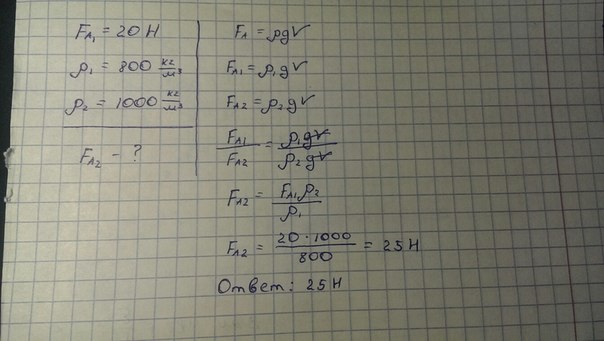 F_A₁ = 20 Н
ρ₁ = 800 кг/м³
ρ₂ = 1000 кг/м³
F_A₂ - ?
F_A = ρgV
F_A₁ = ρ₁gV
F_A₂ = ρ₂gV
F_A₁/F_A₂ = ρ₁gV/ρ₂gV
F_A₂ = F_A₁ρ₂/ρ₁
F_A₂ = 20 · 1000/800 = 25 Н
Ответ: 25 Н